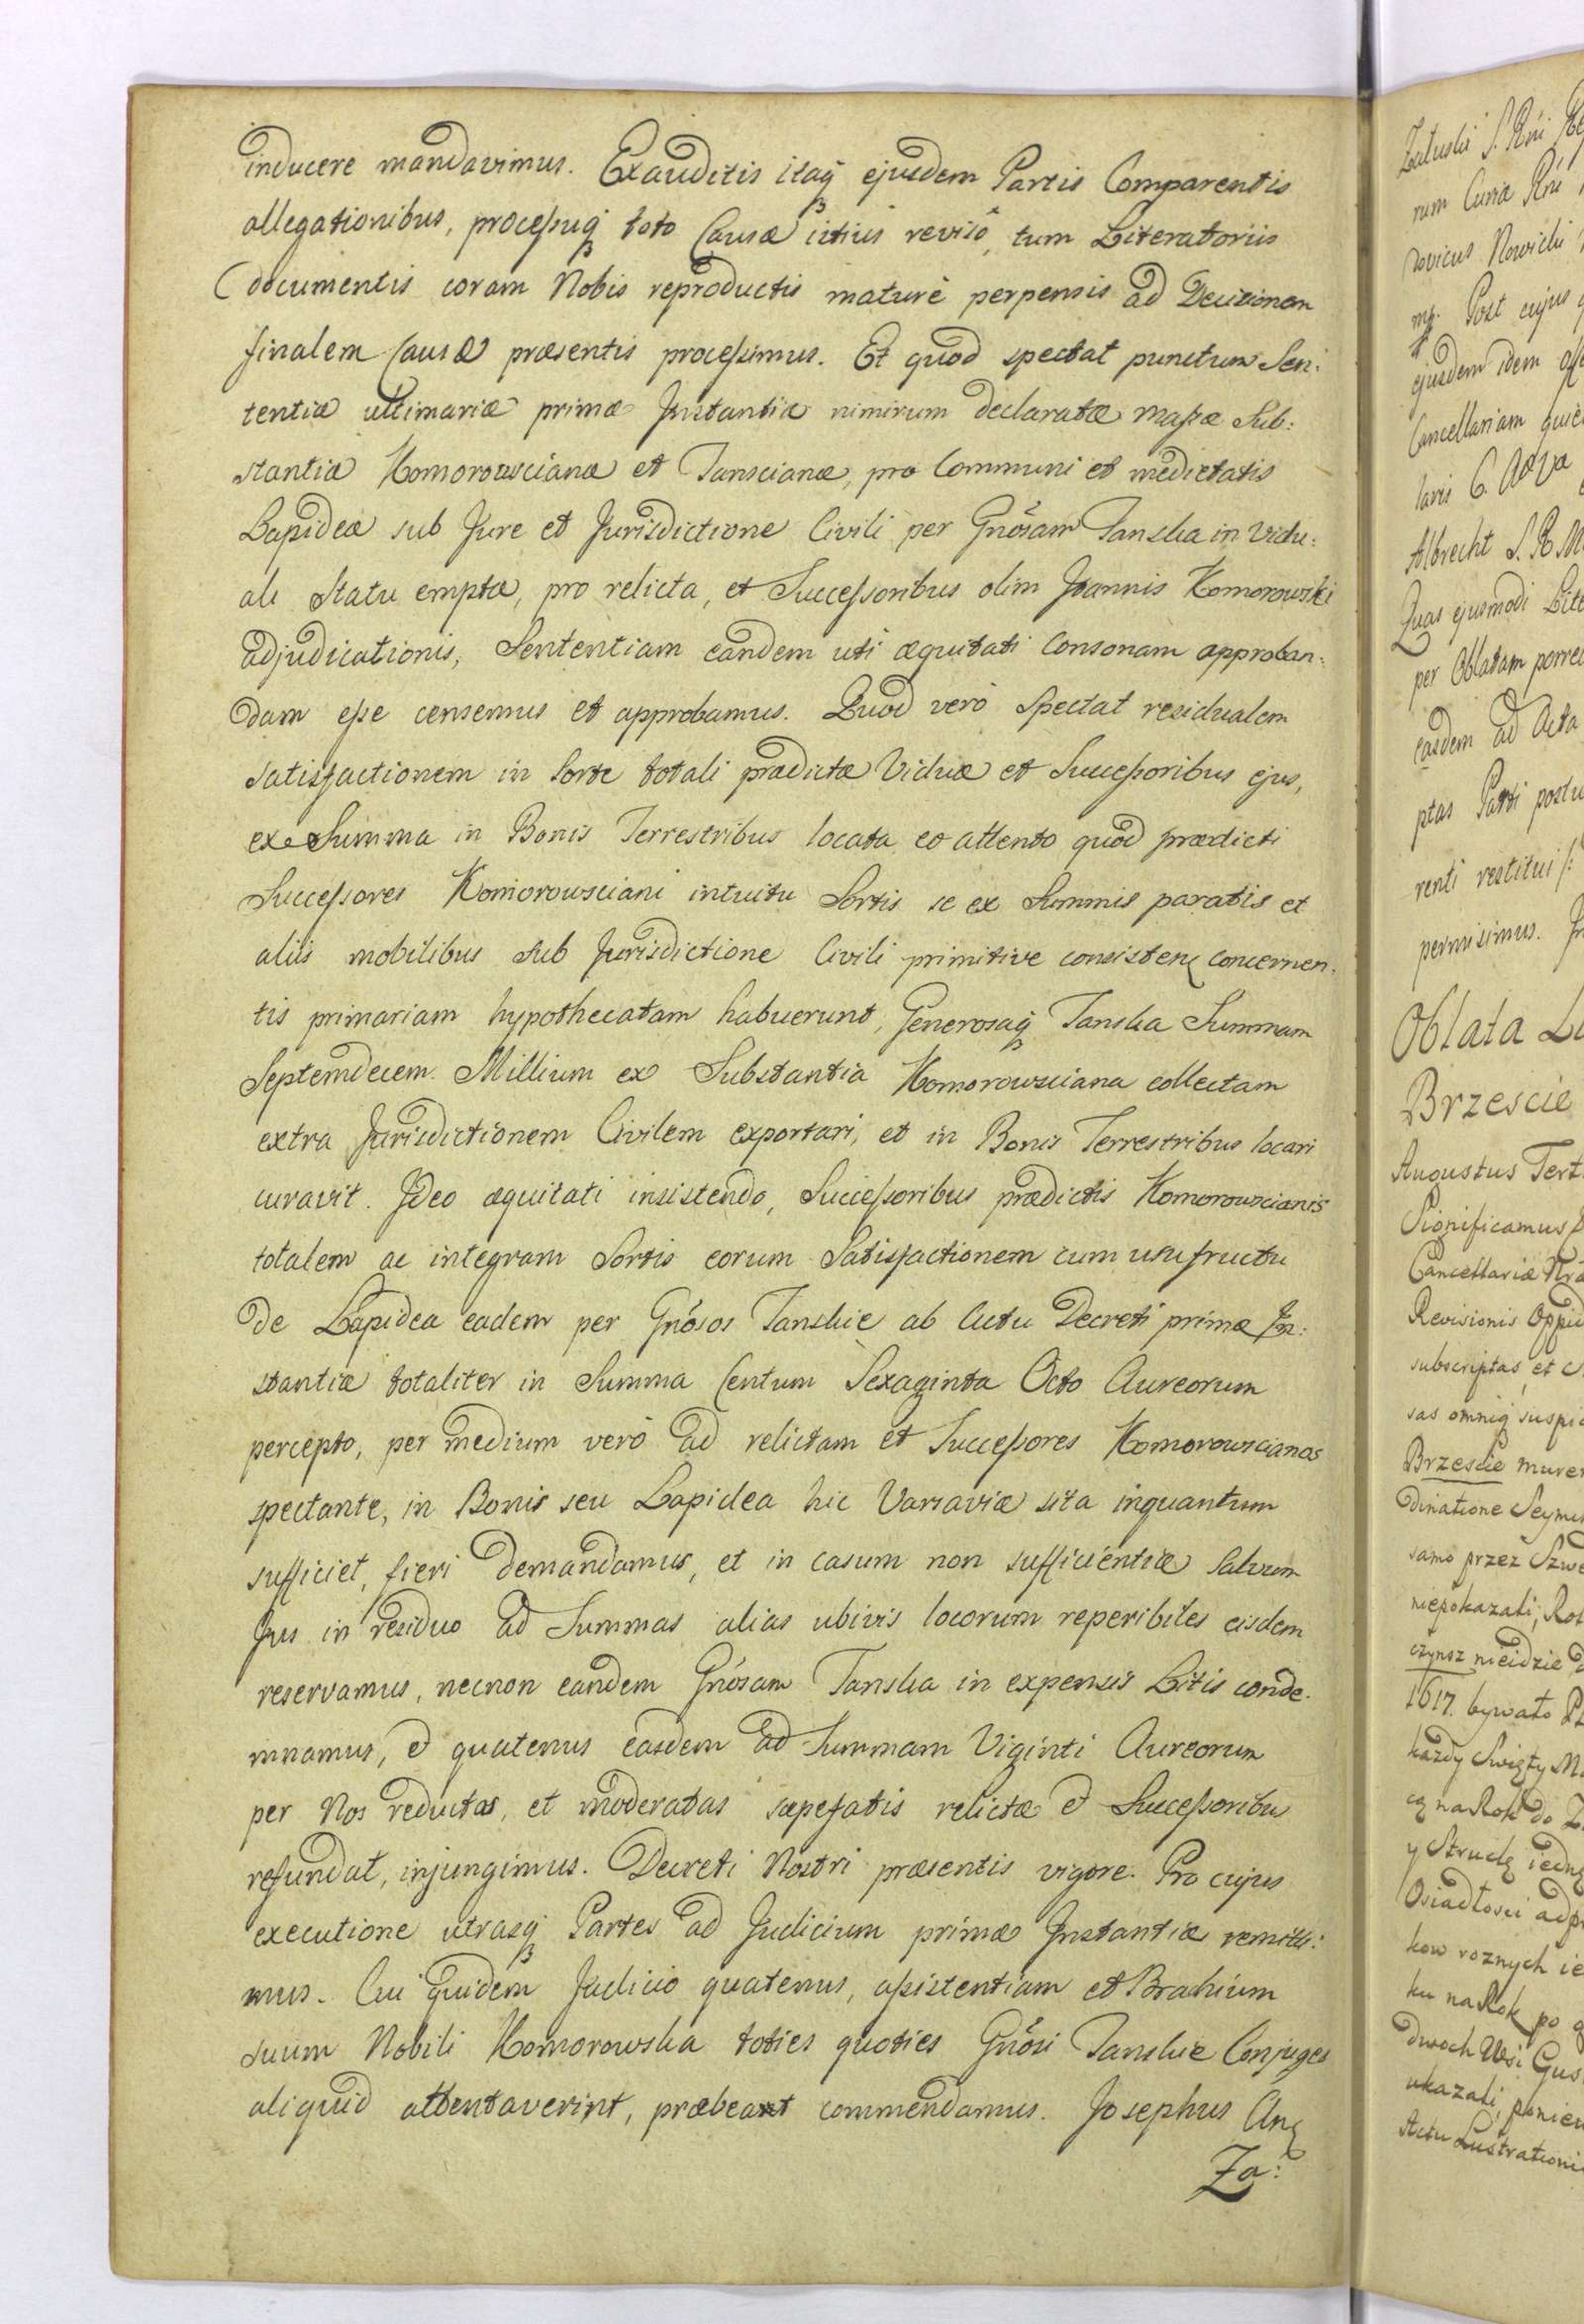 inducere mandavimus. Exauditis itaq́ ejusdem Partis Comparentis
allegationibus, processuq́ toto Causæ istius revisô, tum Literatoriis
documentis coram Nobis reproductis maturè perpensis ad Decisionem
finalem Causæ præsentis processimus. Et quod spectat punctum Sen:
tentiæ ultimariæ primæ Instantiæ nimirum declaratæ massæ Sub:
stantiæ Komorowscianæ et Tanscianæ, pro Communi et medietatis
Lapideæ sub Jure et Jurisdictione Civili per Gnősam Tanska in Vidu:
ali Statu emptæ, pro relicta, et Successoribus olim Joannis Komorowski
adjudicationis, Sententiam eandem uti æquitati Consonam approban:
dam esse censemus et approbamus. Quod verò Spectat residualem
satisfactionem in Sorte totali prædictæ Viduæ et Successoribus ejus,
ex Summa in Bonis Terrestribus locata eo attento quod prædicti
Successores Komorowsciani intuitu Sortis se ex Summis paratis et
aliis mobilibus Sub Jurisdictione Civili primitive consisten̨ concernen:
tis primariam hypothecatam habuerunt, Generosaq́ Tanska Summam
Septemdecem Millium ex Substantia Komorowsciana collectam
extra Jurisdictionem Civilem exportari, et in Bonis Terrestribus locari
curavit. Ideo æquitati insistendo, Successoribus prædictis Komorowscianis
totalem ac integram Sortis eorum Satisfactionem cum usufructu
de Lapidea eadem per Gnősos Tanskie ab Actu Decreti primæ In:
stantiæ totaliter in Summa Centum Sexaginta Octo Aureorum
percepto, per medium verò ad relictam et Successores Komorowscianos
spectante, in Bonis seu Lapidea hic Varsaviæ sita inquantum
sufficiet, fieri demandamus, et in casum non sufficientiæ Salvum
Jus in residuo ad Summas alias ubivis locorum reperibiles eisdem
reservamus, necnon eandem Gnősam Tanska in expensis Litis conde:
mnamus, & quatenus easdem ad Summam Viginti Aureorum
per Nos reductas, et moderatas sæpefatis relictæ & Successoribus
refundat, injungimus. Decreti Nostri præsentis vigore. Pro cujus
executione utrasq́ Partes ad Judicium primæ Instantiæ remitti:
mus. Cui quidem Judicio quatenus, assistentiam et Brachium
suum Nobili Komorowska toties quoties Gnősi Tanskie Conjuges
aliquid attentaverint, præbeant commendamus. Josephus An̨
Za:
Załuski S. Rńi
rum Curiæ Rńi
dovicus Nowicki
mp. Post cujus
ejusdem idem
Cancellariam
laris
Albrecht S. R. M.
Quas ejusmodi
per Oblatam
easdem ad Acta
ptas Parti
renti restitui
permisimus.
Oblata
Brzescie
Augustus Tert
Significamus
Cancellariæ
Revisionis Oppid
subscriptas, et
sas omniq́
Brzescie
dinatione
samo przez Szwe
niepokazali,
czynsz nieidzie
1617. bywało
każdy Swięty
cą na Rok do
y Struclę iedną
Osiadłosci
kow roznych
ku na Rok po
dwoch Wsi
ukazali,
Actu Lustrationi